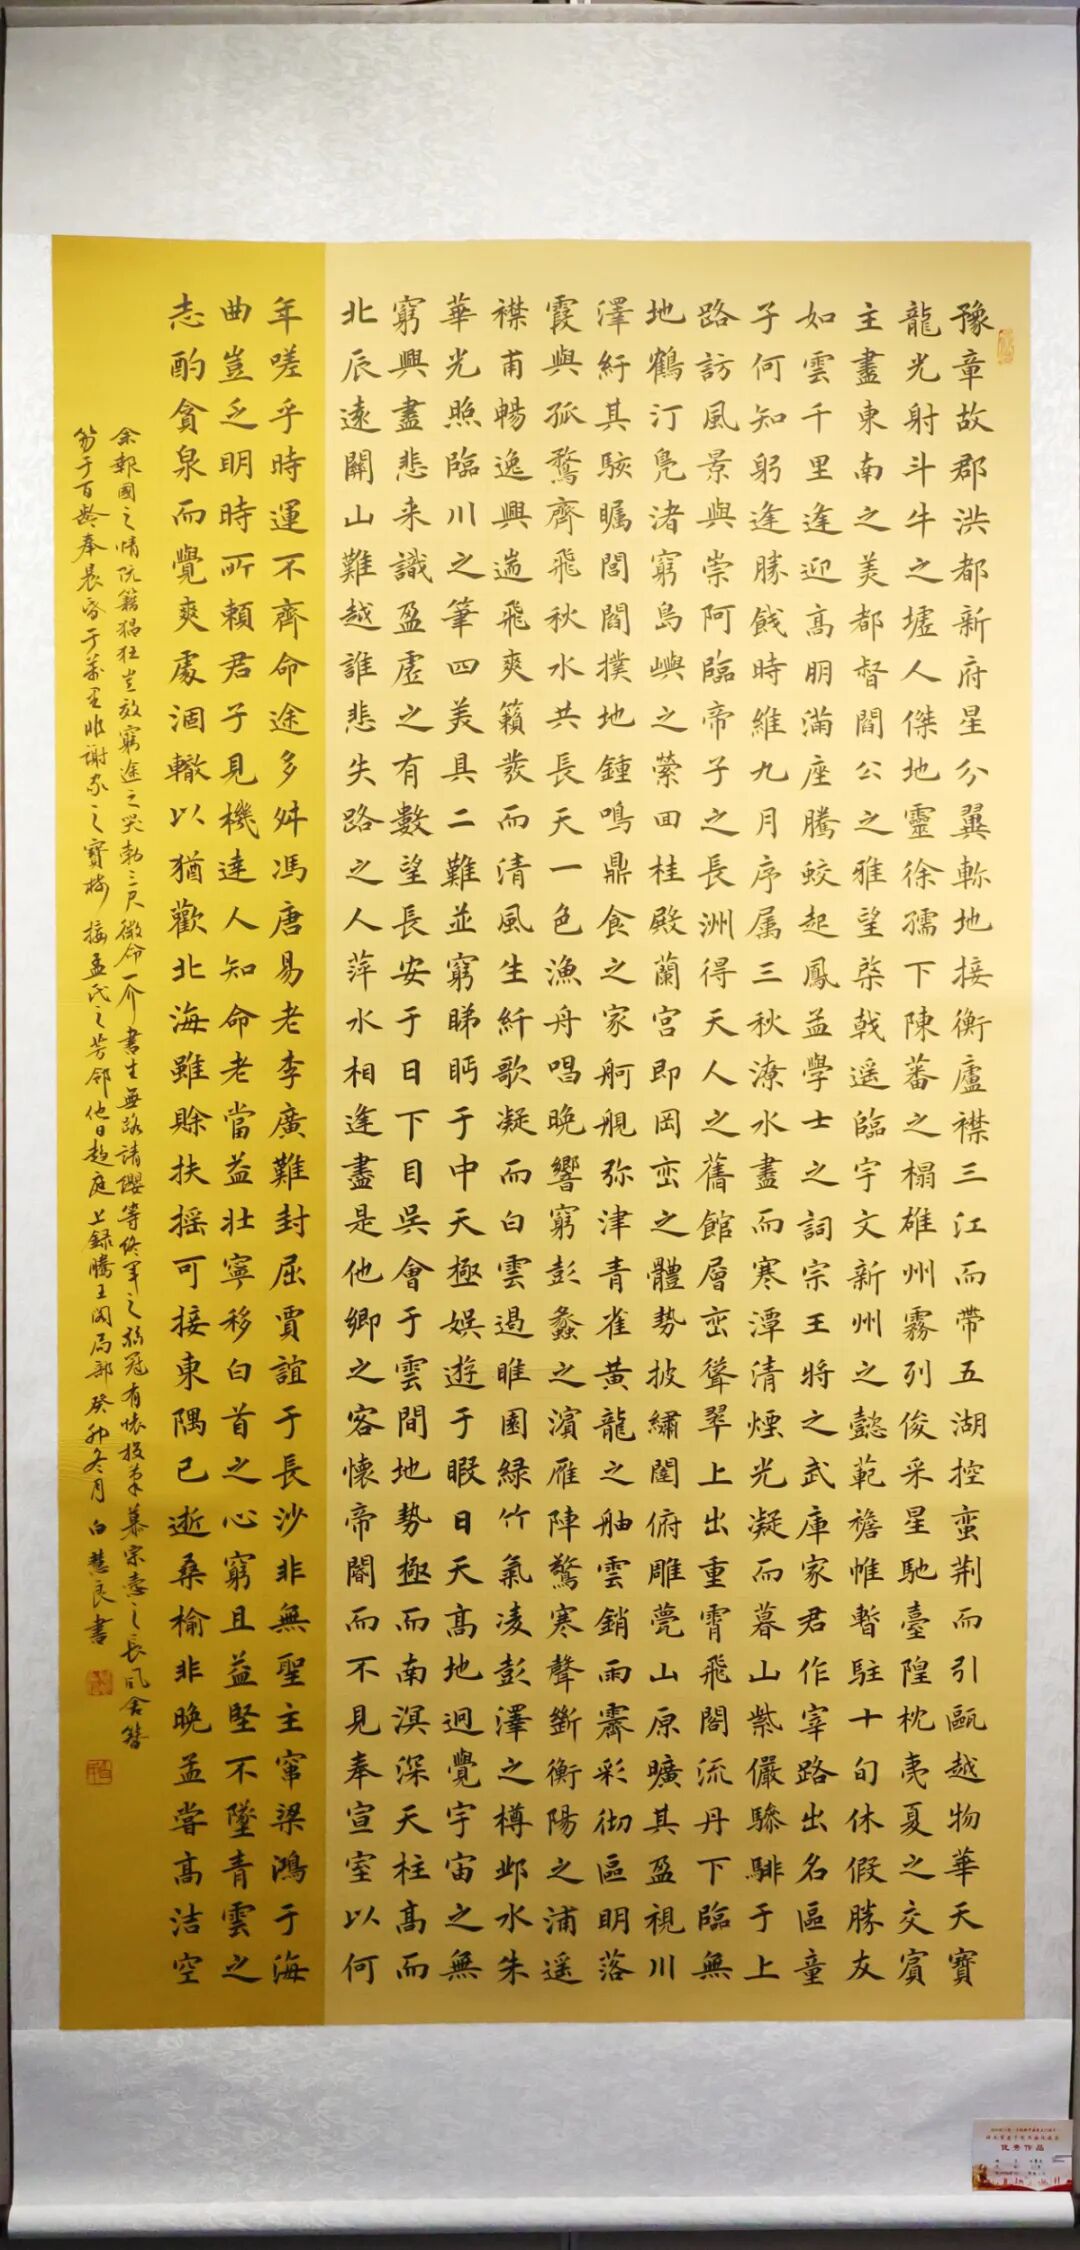 豫章故郡洪都新府星分翼軫地接衡廬襟三江而帶五湖控蛮荊而引甌越物華天寶
龍光射斗牛之墟人傑地靈徐孺下陳蕃之榻雄州霧列俊采星馳臺隍枕夷夏之交賓
主盡東南之美都督閻公之雅望棨戟遥臨宇文新州之懿範襜帷暫駐十旬休假勝友
如雲千里逢迎高朋滿座騰蛟起鳳孟學士之詞宗王將之武庫家君作宰路出名區童
子何知躬逢勝餞時維九月序属三秋潦水盡而寒潭清煙光凝而暮山紫儼驂騑于上
路訪風景與崇阿臨帝子之長洲得天人之舊館層峦聳翠上出重霄飛閣流丹下臨無
地鶴汀鳧渚窮島嶼之縈回桂殿蘭宮即岡峦之體勢披繡闥俯雕甍山原曠其盈視川
澤紆其駭矚閭閻撲地鍾鳴鼎食之家舸舰弥津青雀黄龍之舳雲銷雨霽彩彻區明落
霞與孤鶩齊飛秋水共長天一色漁舟唱晚響窮彭蠡之濱雁陣驚寒聲斷衡陽之浦遥
襟甫暢逸興遄飛爽籟發而清風生纤歌凝而白雲遏睢園綠竹氣凌彭澤之樽邺水朱
華光照臨川之筆四美具二難並窮睇眄于中天極娱遊于暇日天高地迥覺宇宙之無
窮興盡悲来識盈虚之有數望長安于日下目吳會于雲間地勢極而南溟深天柱高而
北辰遠關山難越誰悲失路之人萍水相逢盡是他鄉之客懷帝閽而不見奉宣室以何
年嗟乎時運不齊命途多舛馮唐易老李廣難封屈賈誼于長沙非無聖主竄梁鴻于海
曲豈乏明時所賴君子見機達人知命老當益壯寧移白首之心窮且益堅不墜青雲之
志酌貪泉而覺爽處涸轍以猶歡北海雖賒扶摇可接東隅已逝桑榆非晚孟嘗高洁空
余報國之情阮籍猖狂豈效窮途之哭勃三尺微命一介書生無路請纓等終軍之弱冠有怀投筆慕宗慤之長风舍簪
笏于百龄奉晨昏于萬里非謝家之寶樹接孟氏之芳邻他日趋庭上録騰王阁局部癸卯冬月白慧良書
优秀作品